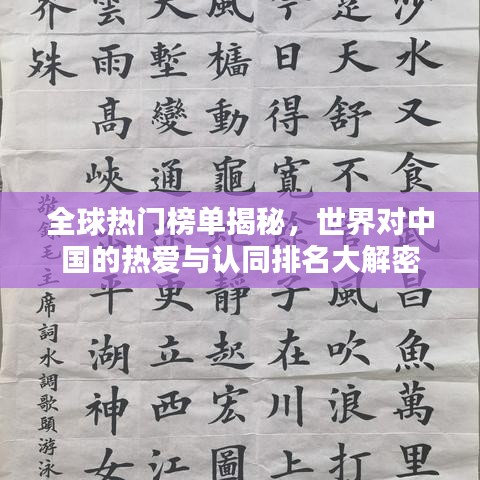 全球热门榜单揭秘，世界对中
国的热爱与认同排名大解密
沙水又食昌魚萬里
楚天舒不風吹浪打
今日得寬子在川上
風檣動龜靜起宏圖
天塹變通更立西江
雲雨高峽平湖神女
界殊
敬錄毛主席詞水調歌頭游泳